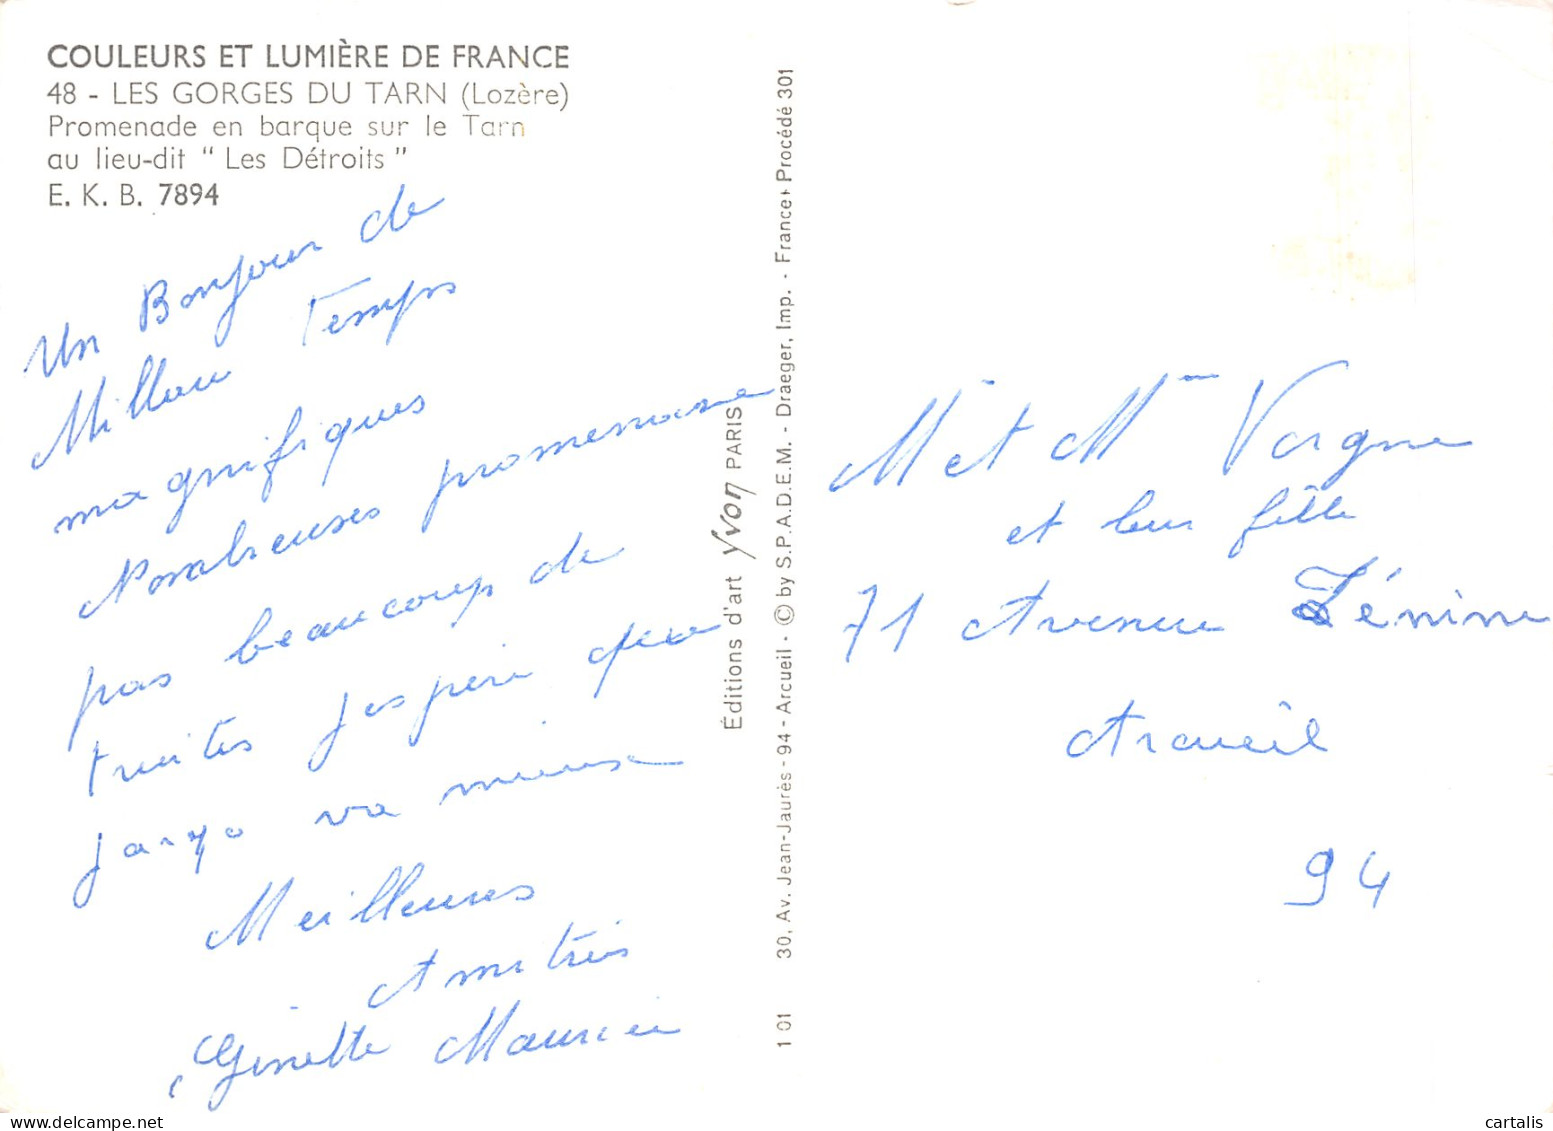 COULEURS ET LUMIÈRE DE FRANCE
48 - LES GORGES DU TARN (Lozère)
Promenade en barque sur le Tarn
au lieu-dit " Les Détroits "
E. K. B. 7894
Un Bonjour de
Millau Temps
magnifiques
Nombreuses promenade
pas beaucoup de
truites J espère que
va mieux
Meilleures
Amitiés
Ginette Maurice
Éditions d'art Yvon PARIS
30, Av. Jean-Jaurès - 94 - Arcueil - © by S.P.A.D.E.M. - Draeger, Imp. - France + Procédé 301
1 01
M et Mme Vergne
et leur fille
71 Avenue Lénine
Arcueil
94
cartalis